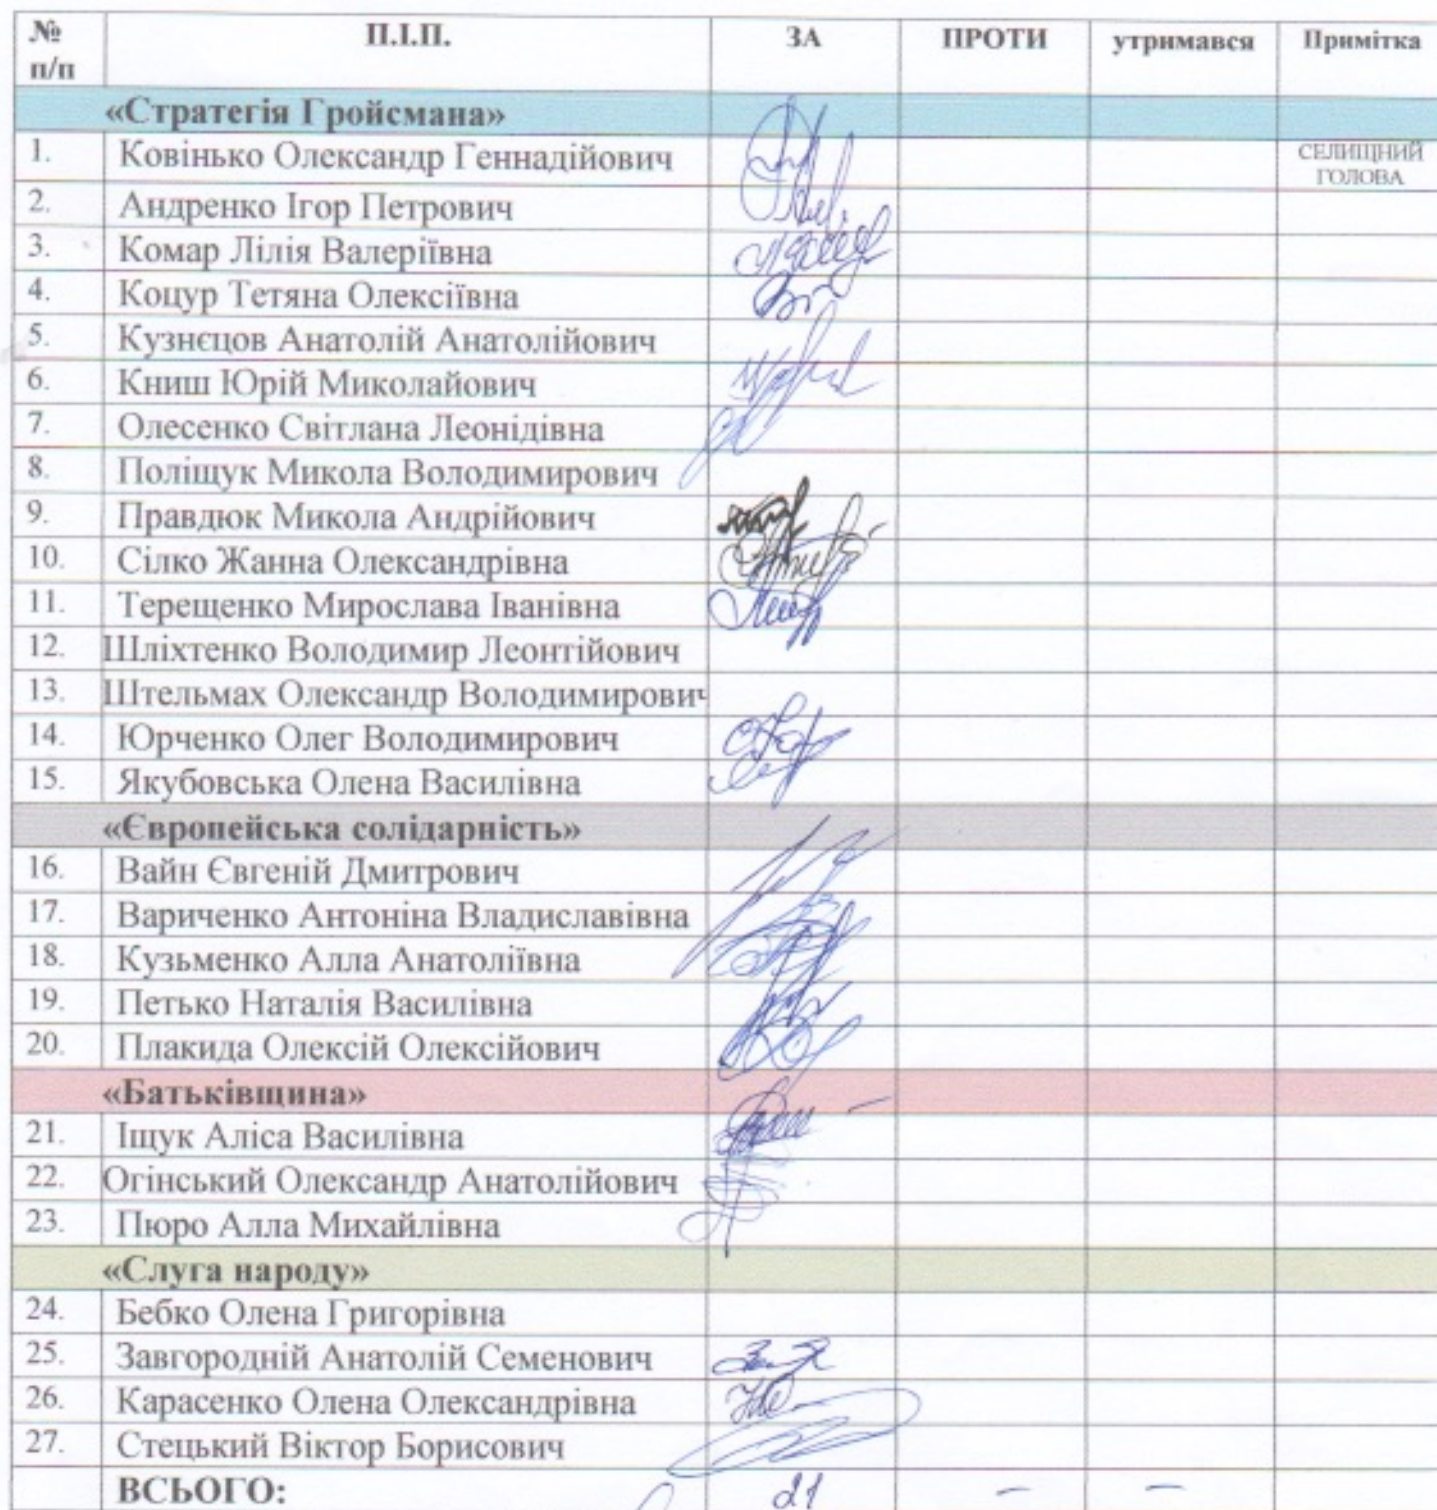 № п/п П.І.П. ЗА ПРОТИ утримався Примітка
«Стратегія Гройсмана»
1. Ковінько Олександр Геннадійович СЕЛИЩНИЙ ГОЛОВА
2. Андренко Ігор Петрович
3. Комар Лілія Валеріївна
4. Коцур Тетяна Олексіївна
5. Кузнєцов Анатолій Анатолійович
6. Книш Юрій Миколайович
7. Олесенко Світлана Леонідівна
8. Поліщук Микола Володимирович
9. Правдюк Микола Андрійович
10. Сілко Жанна Олександрівна
11. Терещенко Мирослава Іванівна
12. Шліхтенко Володимир Леонтійович
13. Штельмах Олександр Володимирович
14. Юрченко Олег Володимирович
15. Якубовська Олена Василівна
«Європейська солідарність»
16. Вайн Євгеній Дмитрович
17. Вариченко Антоніна Владиславівна
18. Кузьменко Алла Анатоліївна
19. Петько Наталія Василівна
20. Плакида Олексій Олексійович
«Батьківщина»
21. Іщук Аліса Василівна
22. Огінський Олександр Анатолійович
23. Пюро Алла Михайлівна
«Слуга народу»
24. Бебко Олена Григорівна
25. Завгородній Анатолій Семенович
26. Карасенко Олена Олександрівна
27. Стецький Віктор Борисович
ВСЬОГО: 21 – –